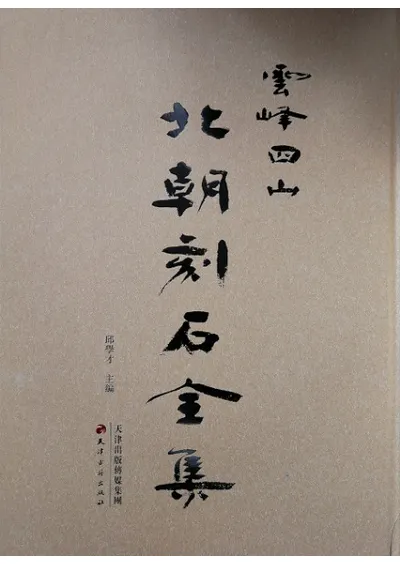 雲峰四山
北朝刻石全集
邱學才 主編
天津出版傳媒集團
天津古籍出版社